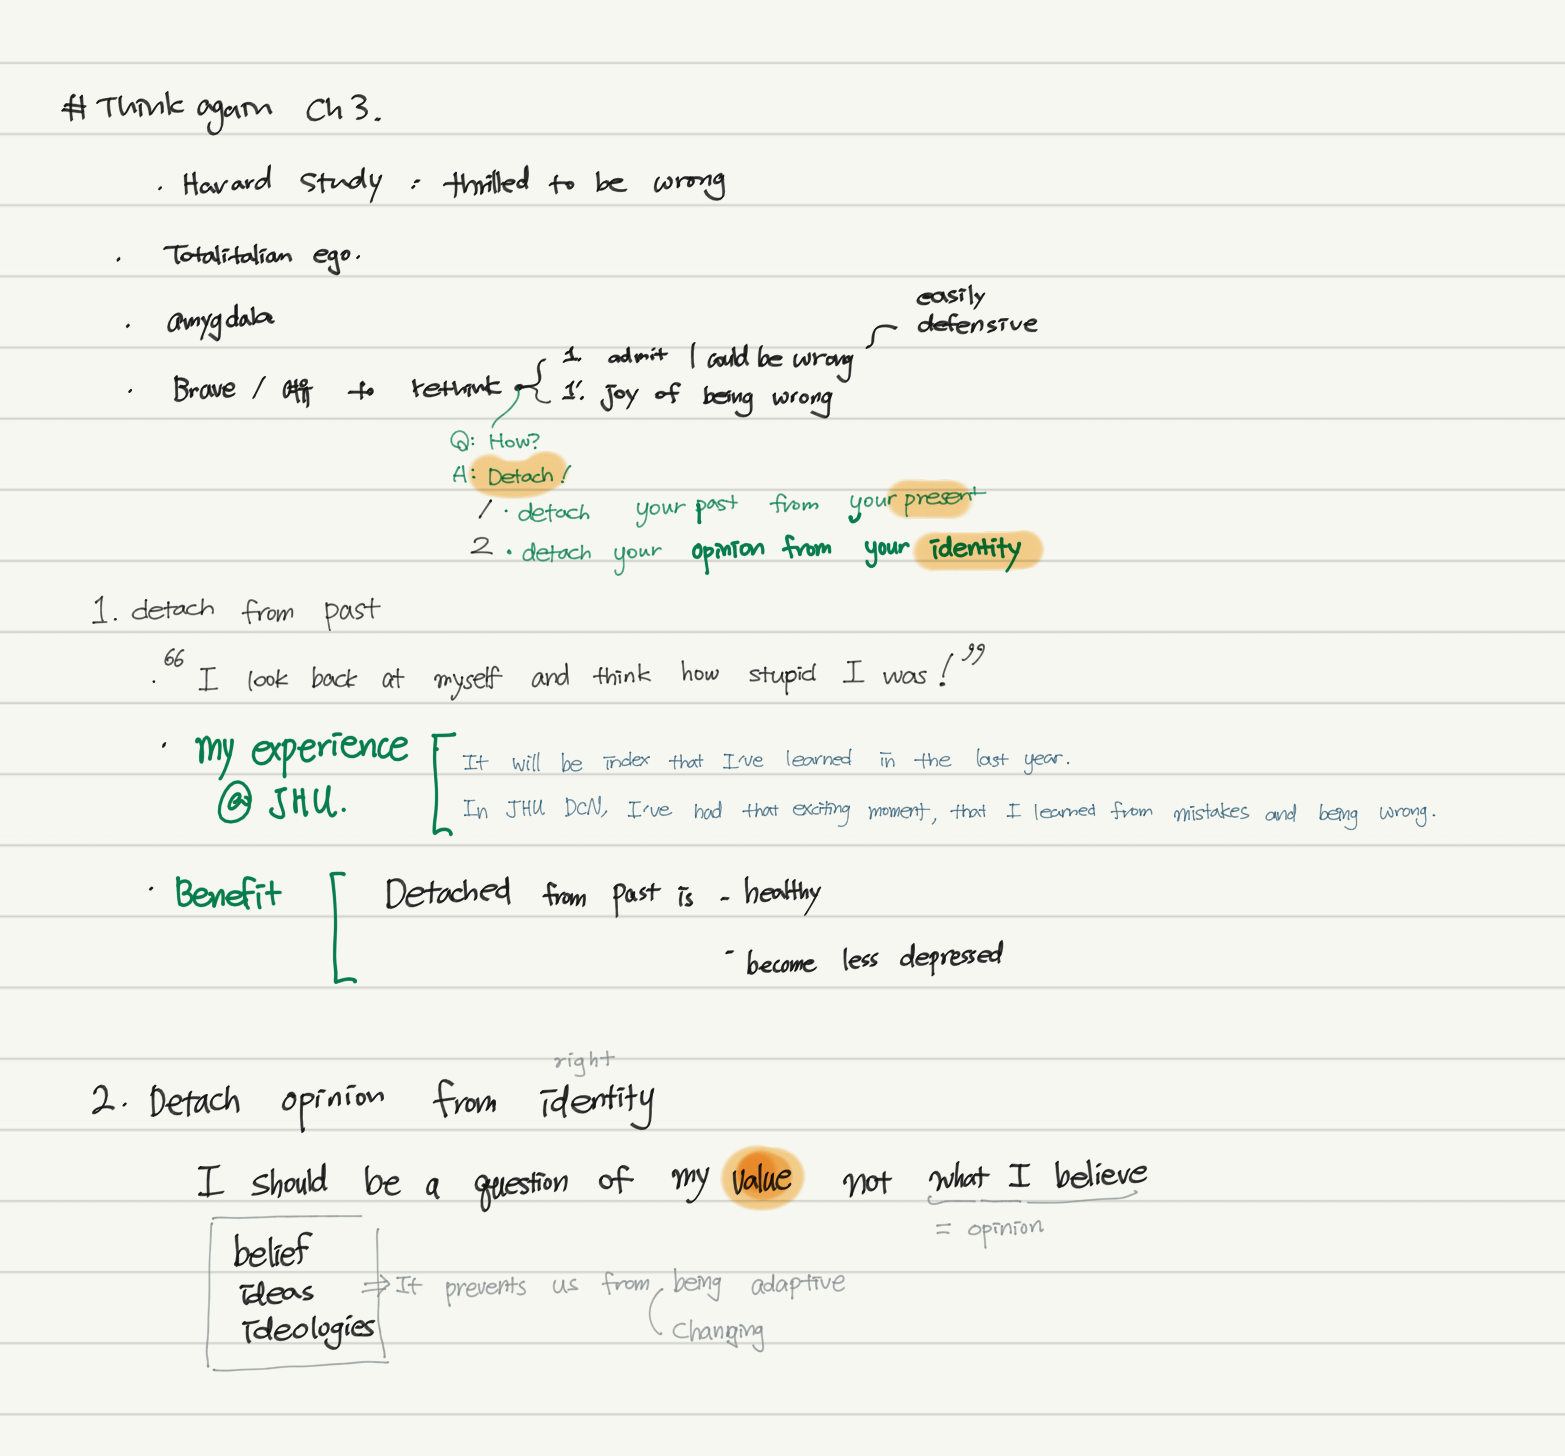 # Think again Ch 3.
· Havard study : thrilled to be wrong
· Totalitalian ego.
· amygdala
easily
defensive
· Brave / to rethink
1. admit I could be wrong
1'. Joy of being wrong
Q: How?
A: Detach!
1 · detach your past from your present
2 · detach your opinion from your identity
1. detach from past
· “ I look back at myself and think how stupid I was! ”
· my experience
@ JHU.
It will be index that I've learned in the last year.
In JHU DCN, I've had that exciting moment, that I learned from mistakes and being wrong.
· Benefit
Detached from past is - healthy
- become less depressed
right
2. Detach opinion from identity
I should be a question of my value not what I believe
= opinion
belief
ideas
Ideologies
⇒ It prevents us from being adaptive
Changing